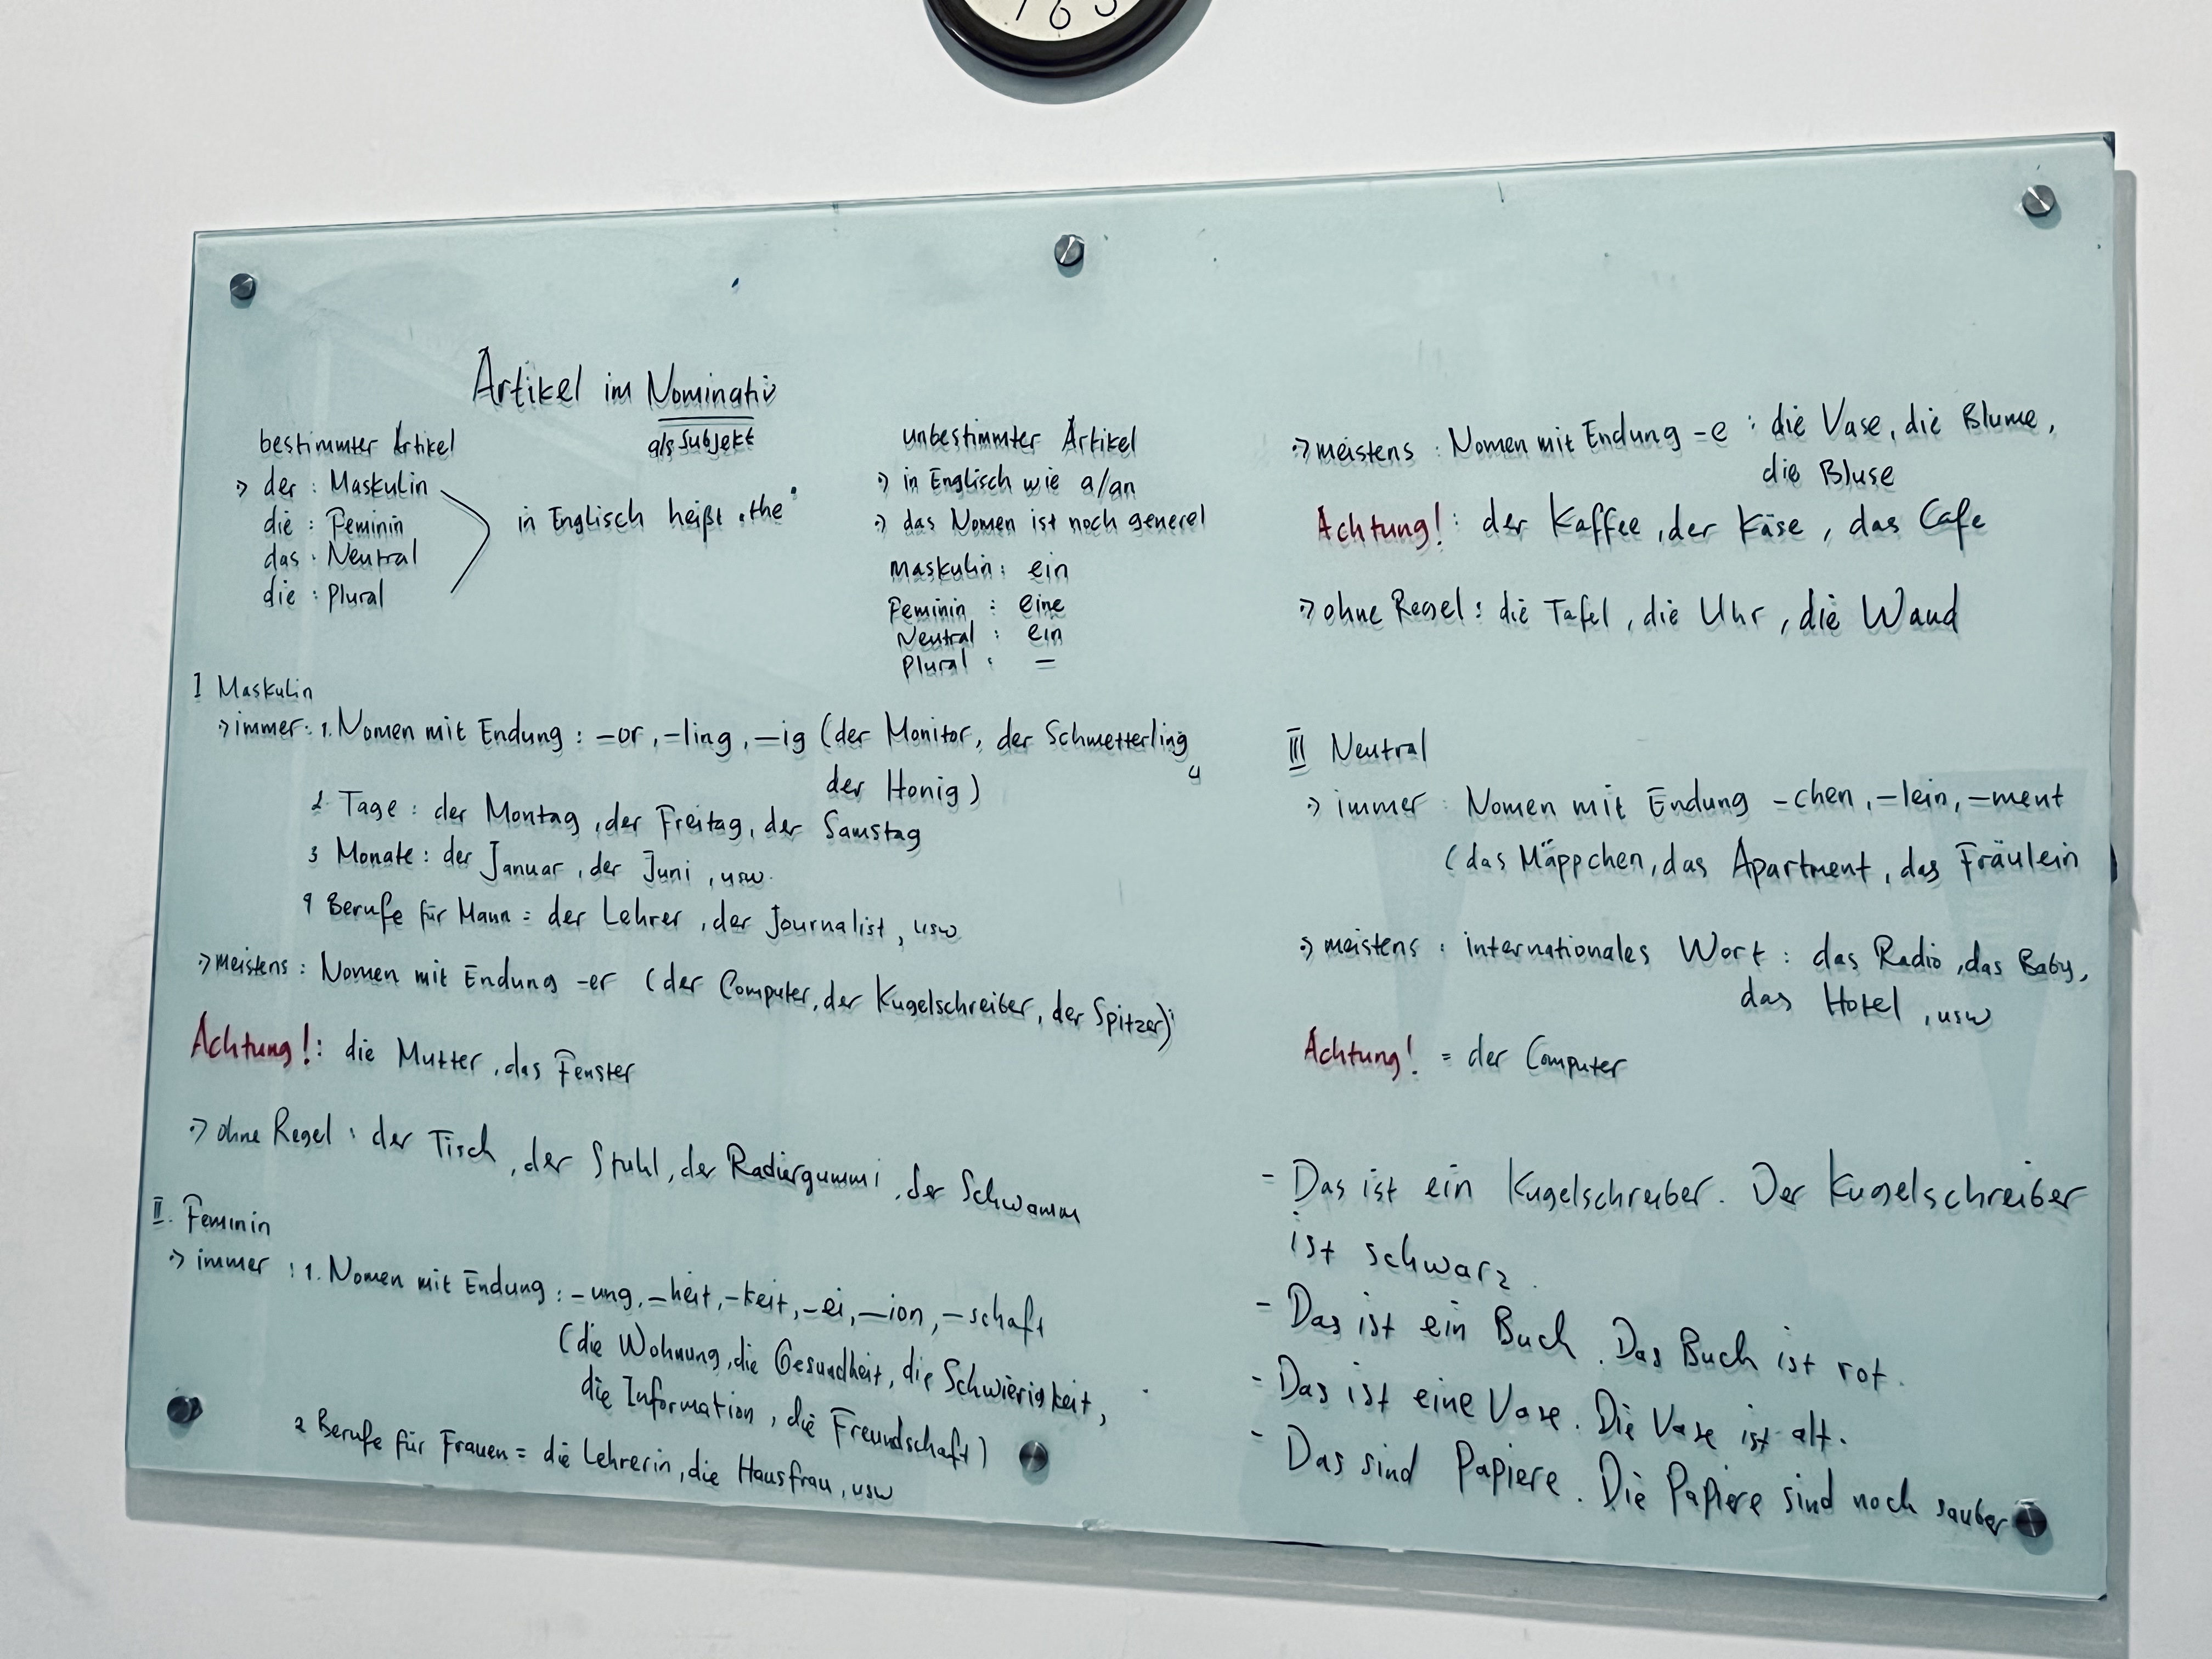 7 6 5
Artikel im Nominativ
als Subjekt
bestimmter Artikel
der : Maskulin
die : Feminin
das : Neutral
die : Plural
in Englisch heißt "the"
unbestimmter Artikel
in Englisch wie a/an
das Nomen ist noch generel
Maskulin : ein
Feminin : eine
Neutral : ein
Plural : =
I Maskulin
immer : 1. Nomen mit Endung : -or, -ling, -ig (der Monitor, der Schmetterling,
der Honig)
2. Tage : der Montag, der Freitag, der Samstag
3 Monate : der Januar, der Juni, usw.
4 Berufe für Mann = der Lehrer, der Journalist, usw
meistens : Nomen mit Endung -er (der Computer, der Kugelschreiber, der Spitzer)
Achtung! : die Mutter, das Fenster
ohne Regel : der Tisch, der Stuhl, der Radiergummi, der Schwamm
II. Feminin
immer : 1. Nomen mit Endung : -ung, -heit, -keit, -ei, -ion, -schaft
(die Wohnung, die Gesundheit, die Schwierigkeit,
die Information, die Freundschaft)
2 Berufe für Frauen = die Lehrerin, die Hausfrau, usw
meistens : Nomen mit Endung -e : die Vase, die Blume,
die Bluse
Achtung! : der Kaffee, der Käse, das Cafe
ohne Regel : die Tafel, die Uhr, die Wand
III Neutral
immer : Nomen mit Endung -chen, -lein, -ment
(das Mäppchen, das Apartment, das Fräulein
meistens : internationales Wort : das Radio, das Baby,
das Hotel, usw
Achtung! = der Computer
- Das ist ein Kugelschreiber. Der Kugelschreiber
ist schwarz.
- Das ist ein Buch. Das Buch ist rot.
- Das ist eine Vase. Die Vase ist alt.
- Das sind Papiere. Die Papiere sind noch sauber